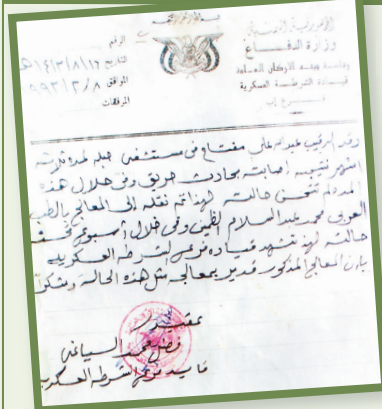 الجمهورية اليمنية
وزارة الدفاع
رئاسة هيئة الأركان العامة
قيادة الشرطة العسكرية
فرع إب
الرقم
التاريخ ١٤١٣/٨/١٦هـ
الموافق ١٩٩٣/٢/٨
المرفقات
رقد الرقيب عبدالله علي مفتاح في مستشفى جبله لمدة ثلاثة
أشهر نتيجة إصابته بحادث حريق وفي خلال هذه
المدة لم تتحسن حالته لهذا تم نقله إلى المعالج بالطب
العربي محمد عبدالسلام الفقيه وفي خلال أسبوع تحسنت
حالته لهذا تشهد قيادة فرع الشرطة العسكرية
بأن المعالج المذكور قدير بمعالجة مثل هذه الحالة وشكراً
عقيد
محمد السياغي
قايد فرع الشرطة العسكرية